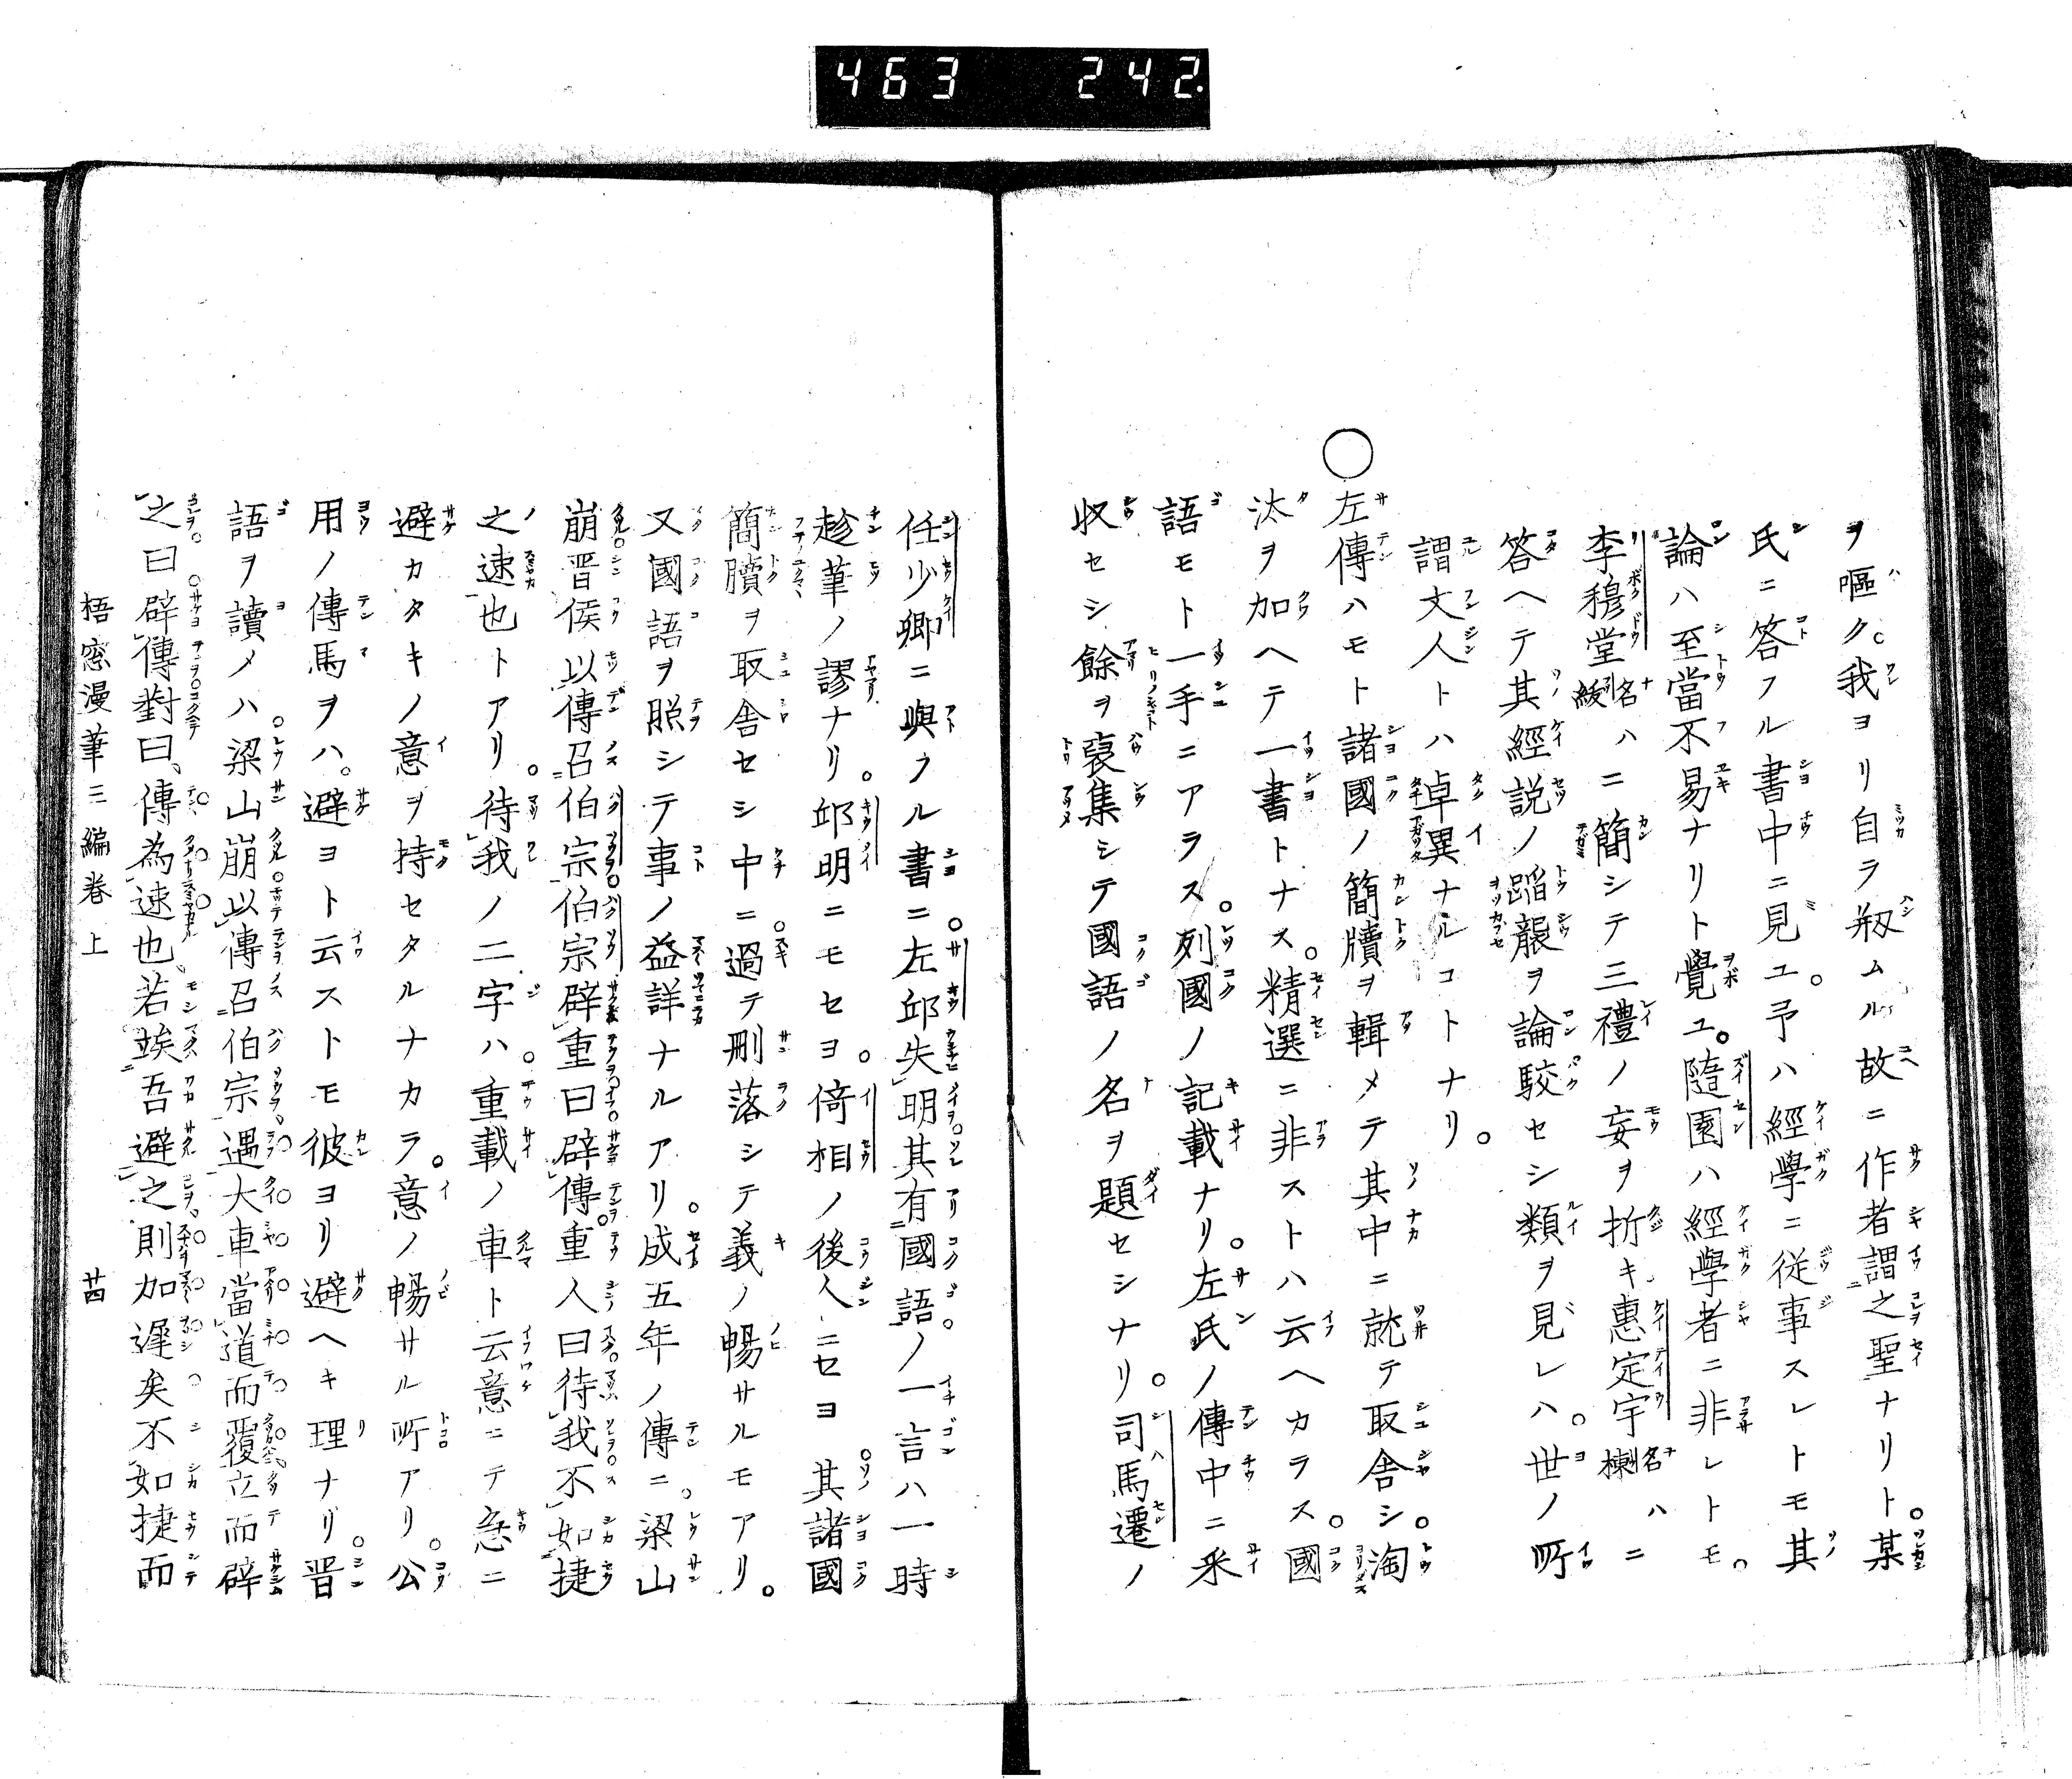 463 242
ヲ嘔ク。我ヨリ自ラ剏ムル故ニ作者謂之聖ナリト。某
氏ニ答フル書中ニ見ユ。予ハ經學ニ従事スレトモ其
論ハ至當不易ナリト覺ユ。隨園ハ經學者ニ非レトモ。
李穆堂名紱ハニ簡シテ三禮ノ妄ヲ折キ、惠定宇名棟ハニ
答ヘテ其經説ノ蹈襲ヲ論駮セシ類ヲ見レハ。世ノ所
謂文人トハ卓異ナルコトナリ。
○左傳ハモト諸國ノ簡牘ヲ輯メテ其中ニ就テ取舎シ。淘
汰ヲ加ヘテ一書トナス。精選ニ非ストハ云ヘカラス。國
語モト一手ニアラス。列國ノ記載ナリ。左氏ノ傳中ニ釆
収セシ餘ヲ裒集シテ國語ノ名ヲ題セシナリ。司馬遷ノ
任少卿ニ與フル書ニ。左邱失明其有國語。ノ一言ハ一時
趁筆ノ謬ナリ。邱明ニモセヨ。倚相ノ後人ニセヨ。其諸國
簡牘ヲ取舎セシ中ニ。過テ刪落シテ義ノ暢サルモアリ。
又國語ヲ照シテ事ノ益詳ナルアリ。成五年ノ傳ニ。梁山
崩。晋侯以傳召伯宗。伯宗辟重曰辟傳。重人曰。待我不如捷
之速也トアリ。待我ノ二字ハ。重載ノ車ト云意ニテ急ニ
避カタキノ意ヲ持セタルナカラ。意ノ暢サル所アリ。公
用ノ傳馬ヲハ。避ヨト云ストモ彼ヨリ避ヘキ理ナリ。晋
語ヲ讀メハ。梁山崩。以傳召伯宗。遇大車當道而覆。立而辟
之曰。辟傳。對曰、傳為速也。若竢吾避之。則加遲矣。不如捷而
梧窓漫筆三編巻上　　廿四